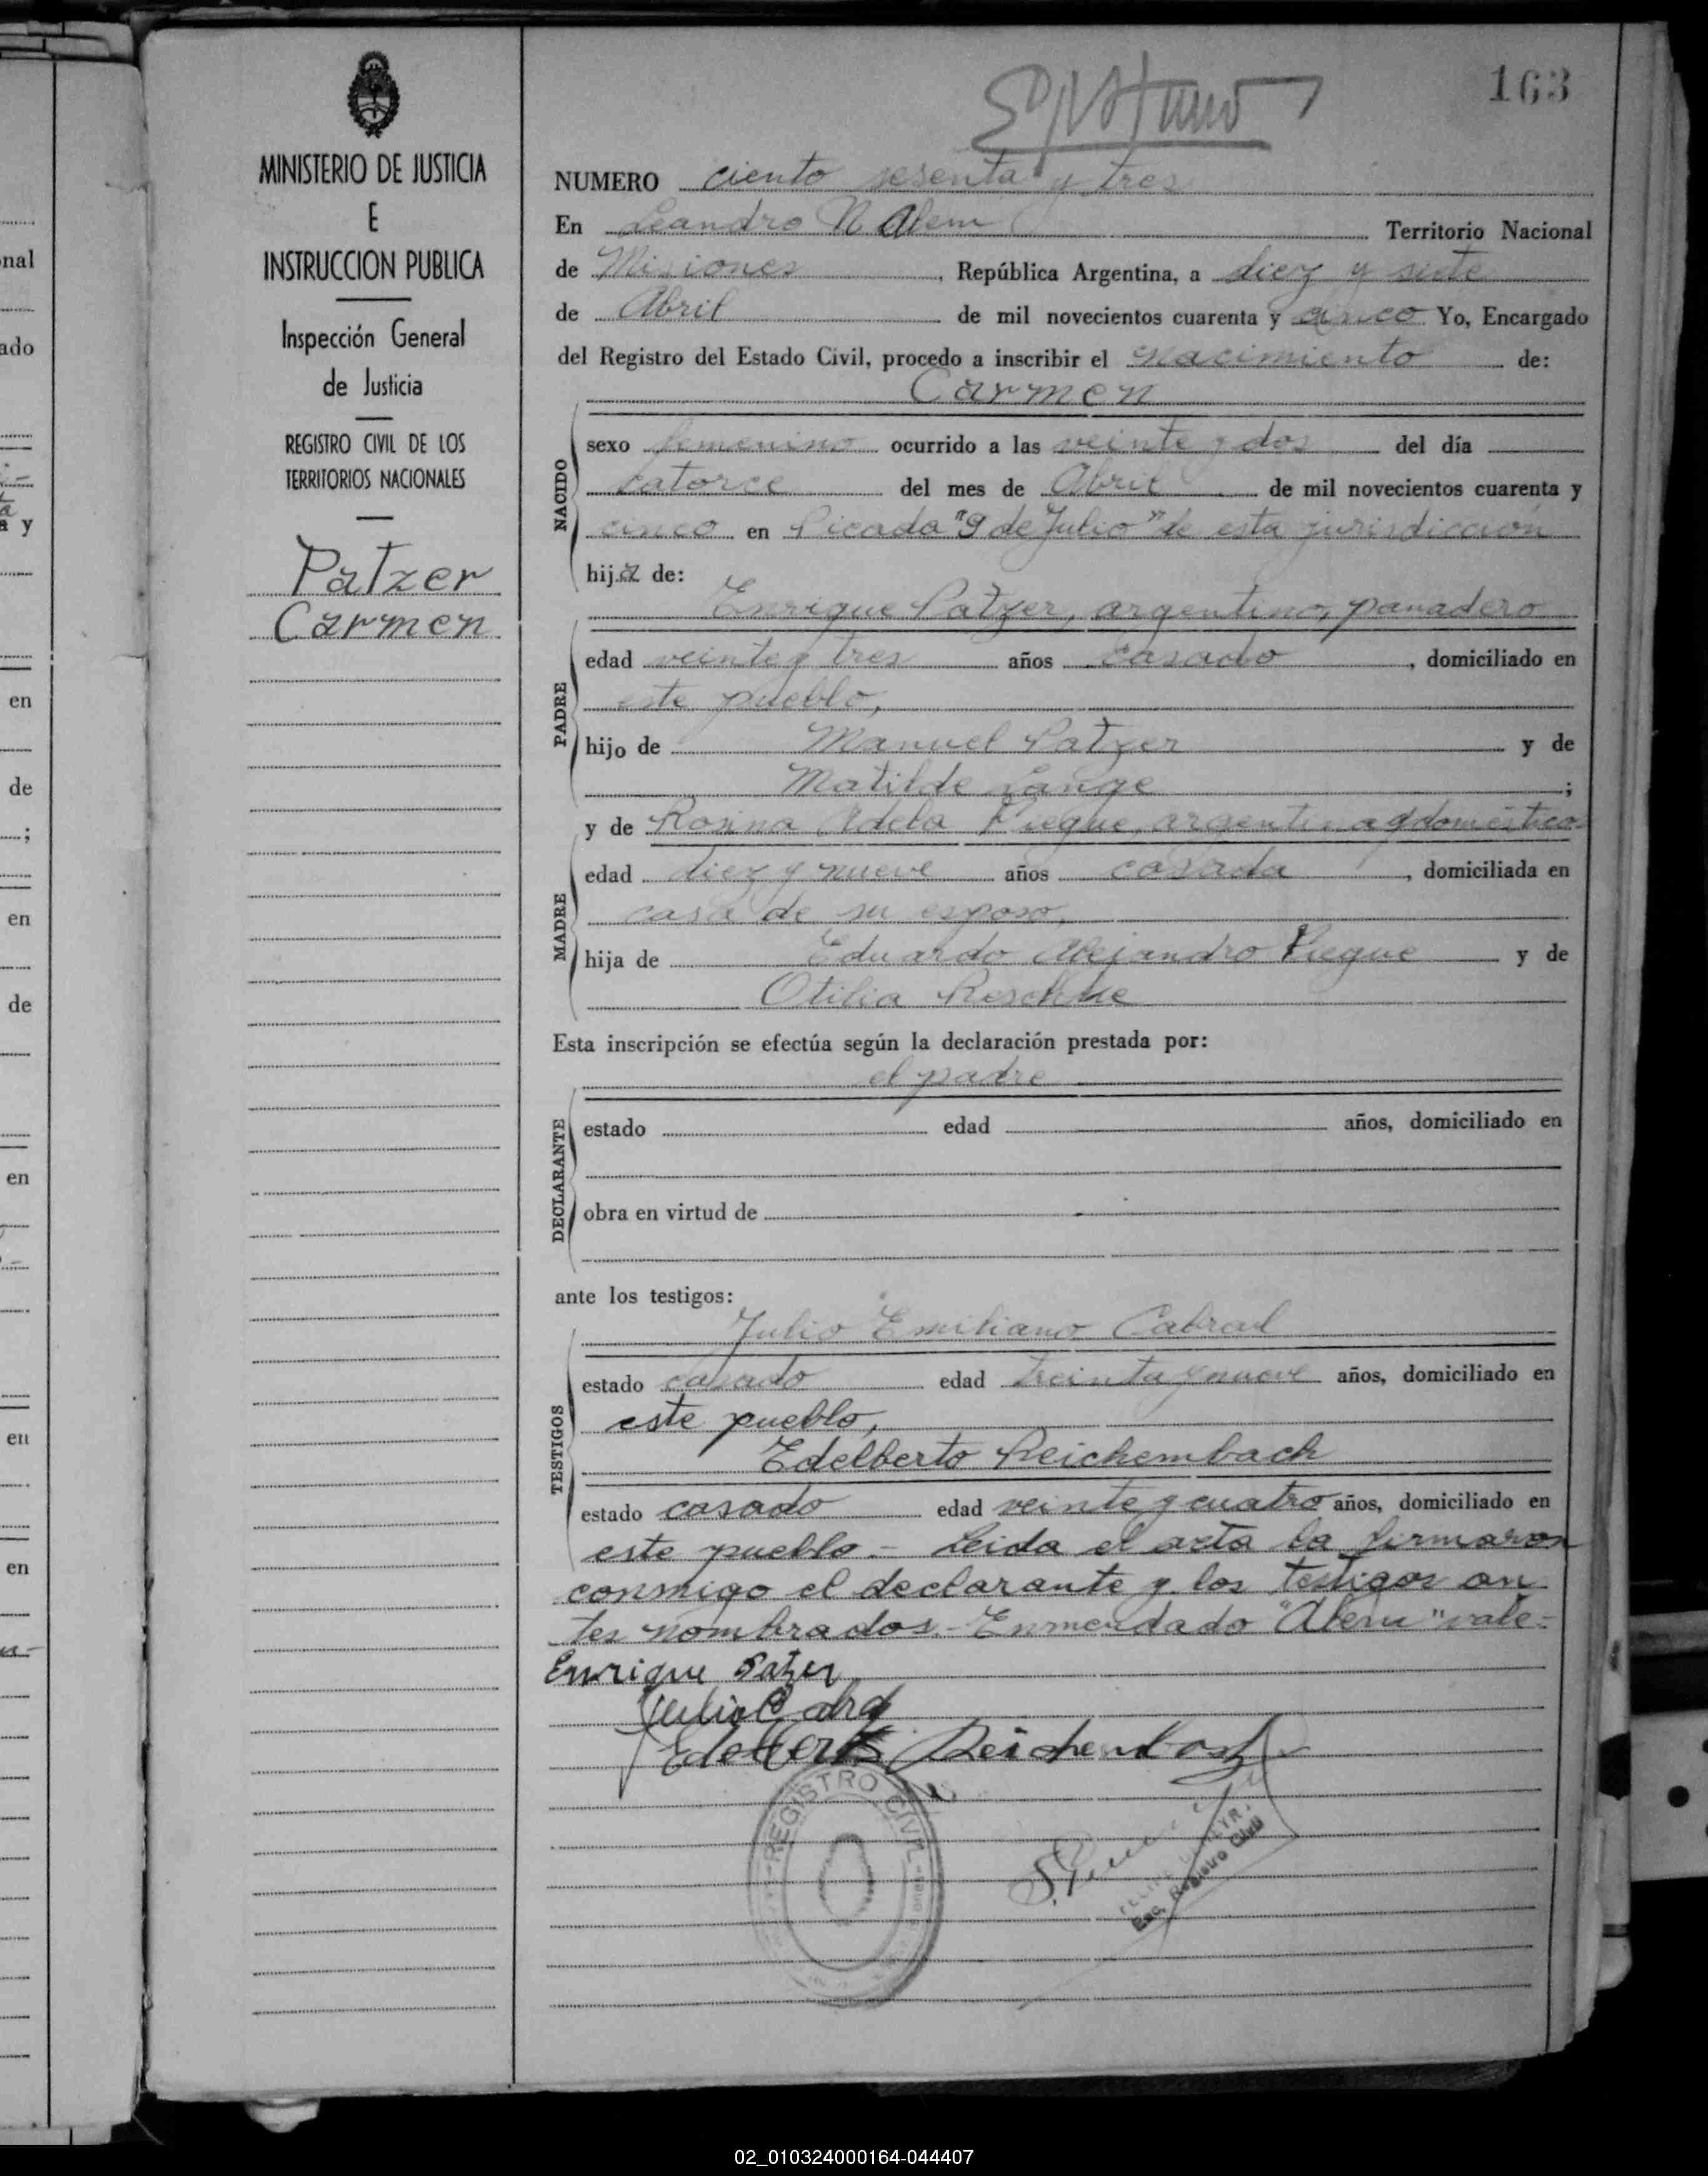 163
NUMERO ciento sesenta y tres
En Leandro N. Alem Territorio Nacional
de Misiones, República Argentina, a diez y siete
de Abril de mil novecientos cuarenta y cinco Yo, Encargado
del Registro del Estado Civil, procedo a inscribir el nacimiento de:
Carmen
NACIDO
sexo femenino ocurrido a las veinte y dos del día
catorce del mes de Abril de mil novecientos cuarenta y
cinco en Picada "9 de Julio" de esta jurisdicción
hija de:
PADRE
Enrique Patzer, argentino, panadero
edad veinte y tres años casado, domiciliado en
este pueblo,
hijo de Manuel Patzer y de
Matilde Lange;
MADRE
y de Rosina Adela argentina, q. domésticos
edad diez y nueve años casada, domiciliada en
casa de su esposo,
hija de Eduardo Alejandro y de
Otilia Reschke
Esta inscripción se efectúa según la declaración prestada por:
el padre
DECLARANTE
estado edad años, domiciliado en
obra en virtud de
ante los testigos:
TESTIGOS
Julio Emiliano Cabral
estado casado edad treinta y nueve años, domiciliado en
este pueblo,
Edelberto Reichembach
estado casado edad veinte y cuatro años, domiciliado en
este pueblo.- Leida el acta la firmaron
conmigo el declarante y los testigos an
tes nombrados.- Enmendado "Alem" vale.-
Enrique Patzer
Julio Cabral
Edelberto Reichenbach
REGISTRO CIVIL
Enc. Registro Civil
MINISTERIO DE JUSTICIA
E
INSTRUCCION PUBLICA
Inspección General
de Justicia
REGISTRO CIVIL DE LOS
TERRITORIOS NACIONALES
Patzer
Carmen
02_010324000164-044407